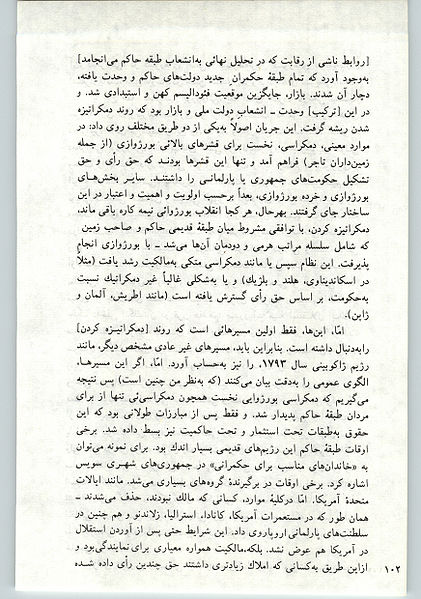 [روابط ناشی از رقابت که در تحلیل نهائی به‌انشعاب طبقه حاکم می‌انجامد]
به‌وجود آورد که تمام طبقهٔ حکمران جدید دولت‌های حاکم و وحدت یافته،
دچار آن شدند. بازار، جایگزین موقعیت فئودالیسم کهن و استبدادی شد. و
در این [ترکیب] وحدت ــ انشعاب دولت ملی و بازار بود که روند دمکراتیزه
شدن ریشه گرفت. این جریان اصولاً به‌یکی از دو طریق مختلف روی داد: در
موارد معینی، دمکراسی، نخست برای قشرهای بالائی بورژوازی (از جمله
زمین‌داران تاجر) فراهم آمد و تنها این قشرها بودند که حق رأی و حق
تشکیل حکومت‌های جمهوری یا پارلمانی را داشتند. سایر بخش‌های
بورژوازی و خرده بورژوازی، بعداً برحسب اولویت و اهمیت و اعتبار در این
ساختار جای گرفتند. بهرحال، هر کجا انقلاب بورژوائی نیمه کاره باقی ماند،
دمکراتیزه کردن، با توافقی مشروط میان طبقهٔ قدیمی حاکم و صاحب زمین
که شامل سلسله مراتب هرمی و دودمان آن‌ها می‌شد ــ با بورژوازی انجام
پذیرفت. این نظام سپس یا مانند دمکراسی متکی به‌مالکیت رشد یافت (مثلاً
در اسکاندیناوی، هلند و بلژیك) و یا به‌شکلی غالباً غیر دمکراتیك نسبت
به‌حکومت، بر اساس حق رأی گسترش یافته است (مانند اطریش، آلمان و
ژاپن).
امّا، این‌ها، فقط اولین مسیرهائی است که روند [دمکراتیـزه کردن]
رابه‌دنبال داشته است. بنابراین باید، مسیرهای غیر عادی مشخص دیگر، مانند
رژیم ژاکوبینی سال ۱۷۹۳، را نیز به‌حساب آورد. امّا، اگر این مسیرهـا،
الگوی عمومی را به‌دقت بیان می‌کنند (که به‌نظر من چنین است) پس نتیجه
می‌گیریم که دمکراسی بورژوایی نخست همچون دمکراسی‌ئی تنها از برای
مردان طبقهٔ حاکم پدیدار شد. و فقط پس از مبارزات طولانی بود که این
حقوق به‌طبقات تحت استثمار و تحت حاکمیت نیز بسط داده شد. برخی
اوقات طبقهٔ حاکم این رژیم‌های قدیمی بسیار اندك بود. برای نمونه می‌توان
به «خاندان‌های مناسب برای حکمرانی» در جمهوری‌های شهـری سویس
اشاره کرد. برخی اوقات در برگیرندهٔ گروه‌های بسیاری می‌شد. مانند ایالات
متحدهٔ آمریکا. امّا درکلیهٔ موارد، کسانی که مالك نبودند، حذف می‌شدند ــ
همان طور که در مستعمرات آمریکا، کانادا، استرالیا، زلاندنو و هم چنین در
سلطنت‌های پارلمانی اروپاروی داد. این شرایط حتی پس از آوردن استقلال
در آمریکا هم عوض نشد. بلکه،مالکیت همواره معیاری برای نمایندگی‌بود و
ازاین طریق به‌کسانی که املاك زیادتری داشتند حق چندین رأی داده شـده
۱۰۲